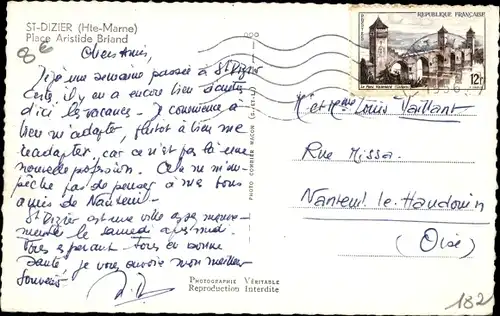 ST-DIZIER (Hte-Marne)
Place Aristide Briand
8€
Chers Amis,
Déjà une semaine passée à St Dizier
Certes, il y en a encore bien d'autres
d'ici les vacances - Je commence à
bien m'adapter, plutôt à bien me
réadapter, car ce n'est pas là une
nouvelle profession. Cela ne m'em-
pêche pas de penser à mes bons
amis de Nanteuil.
St Dizier est une ville assez
le samedi après midi.
Vous espérant tous en bonne
santé je vous envoie mon meilleur
souvenir
PHOTO COMBIER MACON (S.-ET-L.)
PHOTOGRAPHIE VÉRITABLE
Reproduction Interdite
REPUBLIQUE FRANÇAISE
POSTES
12f
Le Pont Valentré Cahors
M et Mme Louis Vaillant
Rue Missa.
Nanteuil le Haudouin
(Oise)
182